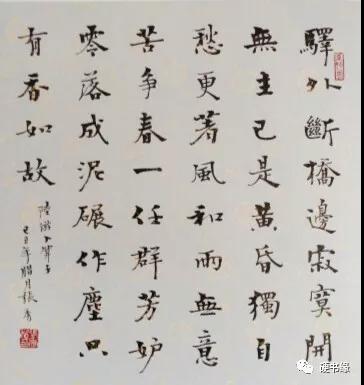 驛外斷橋邊寂寞開
無主已是黄昏獨自
愁更著風和雨無意
苦争春一任群芳妒
零落成泥碾作塵只
有香如故
陸游卜算子
年腊月張
硬书缘